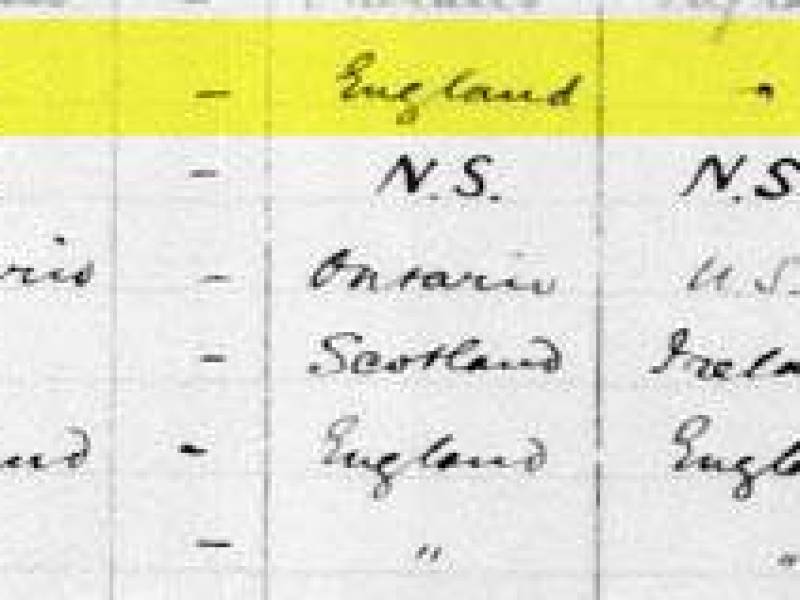 – England "
– N.S. N.S
rio – Ontario U.S.
– Scotland Irela
and – England Engla
– " "